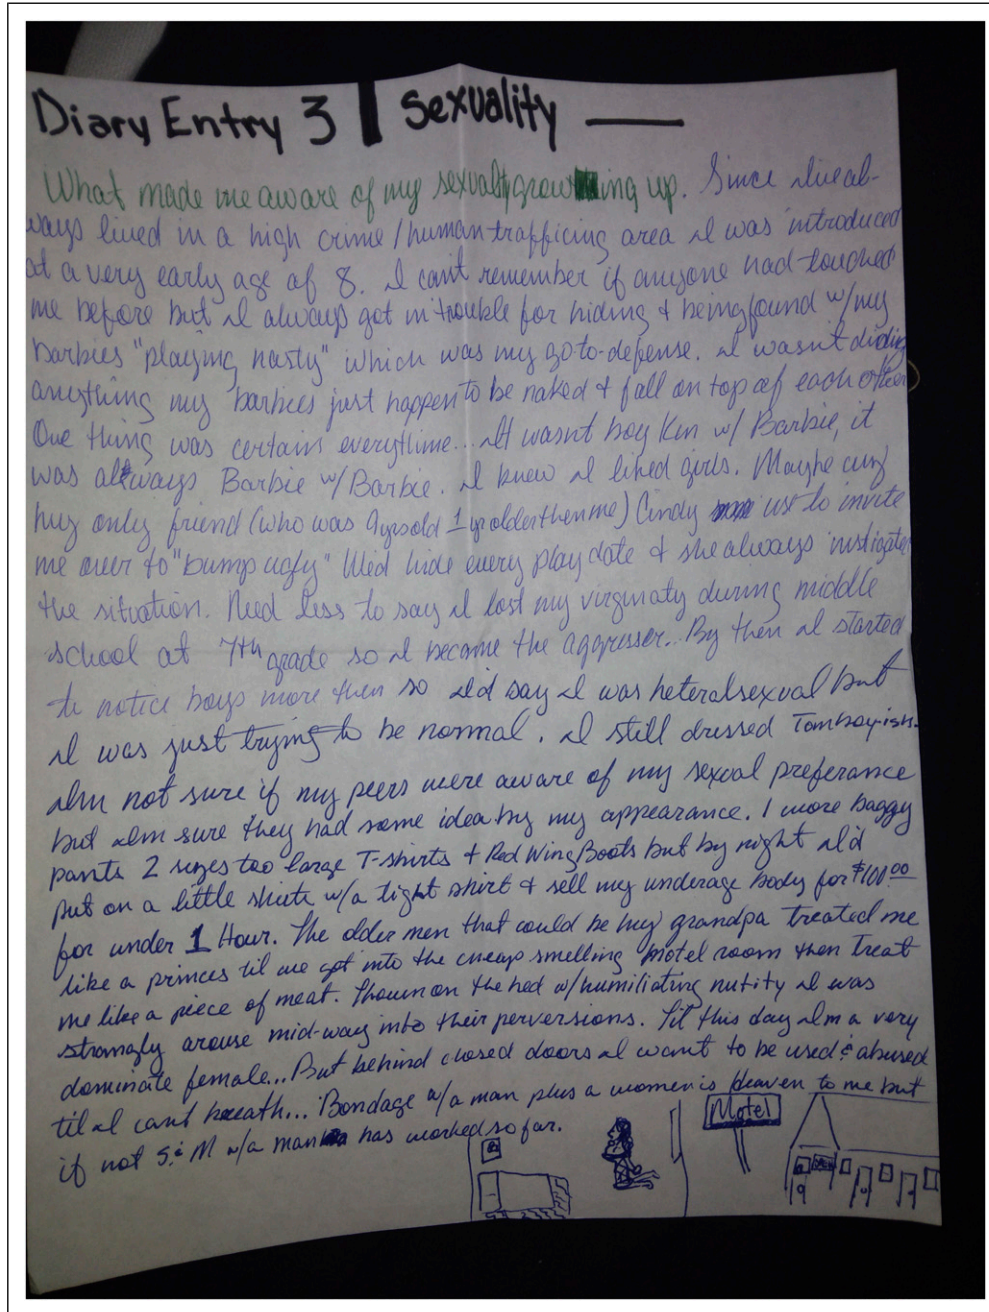 Diary Entry 3 | Sexuality
What made me aware of my sexuality growing up. Since I live al-
ways lived in a high crime / human trafficing area I was introduced
at a very early age of 8. I can't remember if anyone had touched
me before but I always got in trouble for hiding & being found w/ my
barbies "playing nasty" which was my go to-defense. I wasn't
anything my barbies just happen to be naked & fall on top of each other
One thing was certain everytime... It wasnt boy Ken w/ Barbie, it
was always Barbie w/ Barbie. I knew I liked girls. Maybe cuz
my only friend (who was 9yrs old 1 yr older then me) Cindy use to invite
me over to "bump ugly" We'd hide every play date & she always instigate
the situation. Need less to say I lost my virginaty during middle
school at 7th grade so I became the aggresser.. By then I started
to notice boys more then so I'd say I was heteralsexual but
I was just trying to be normal. I still dressed Tomboy-ish.
I'm not sure if my peers were aware of my sexual preferance
but I'm sure they had some idea by my appearance. I wore baggy
pants 2 sizes too large T-shirts & Red Wing Boots but by night I'd
put on a little skirt w/ a tight shirt & sell my underage body for $100.00
for under 1 Hour. The older men that could be my grandpa treated me
like a princes til we got into the cheap smelling motel room then treat
me like a piece of meat. Thown on the bed w/ humiliating nutity I was
strangly arouse mid-way into their perversions. Til this day I'm a very
dominate female... But behind closed doors I want to be used & abused
til I cant breath... Bondage w/ a man plus a women is Heaven to me but
if not S & M w/ a man has worked so far.
Motel